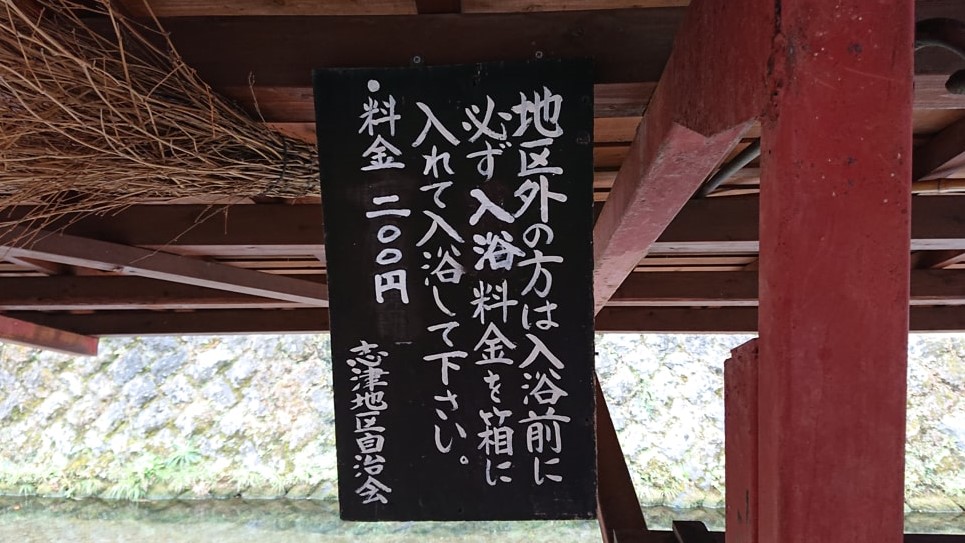 地区外の方は入浴前に
必ず入浴料金を箱に
入れて入浴して下さい。
•料金 二〇〇円
志津地区自治会